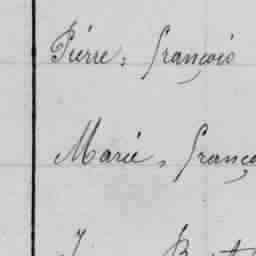 Piérre, françois
Marie, franço